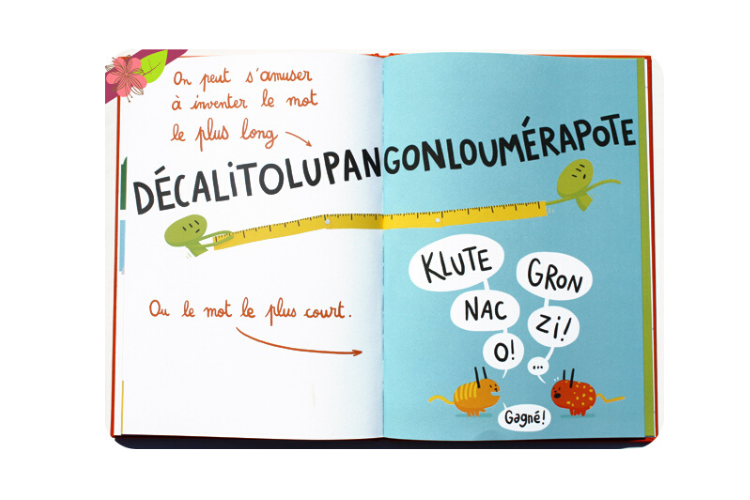 On peut s'amuser
à inventer le mot
le plus long
DÉCALITOLUPANGONLOUMÉRAPOTE
Ou le mot le plus court.
KLUTE
GRON
NAC
ZI!
O!
...
Gagné!